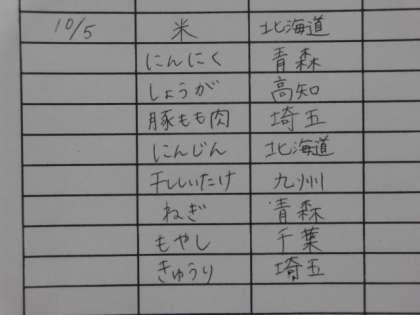 10/5 米 北海道
にんにく 青森
しょうが 高知
豚もも肉 埼玉
にんじん 北海道
干ししいたけ 九州
ねぎ 青森
もやし 千葉
きゅうり 埼玉